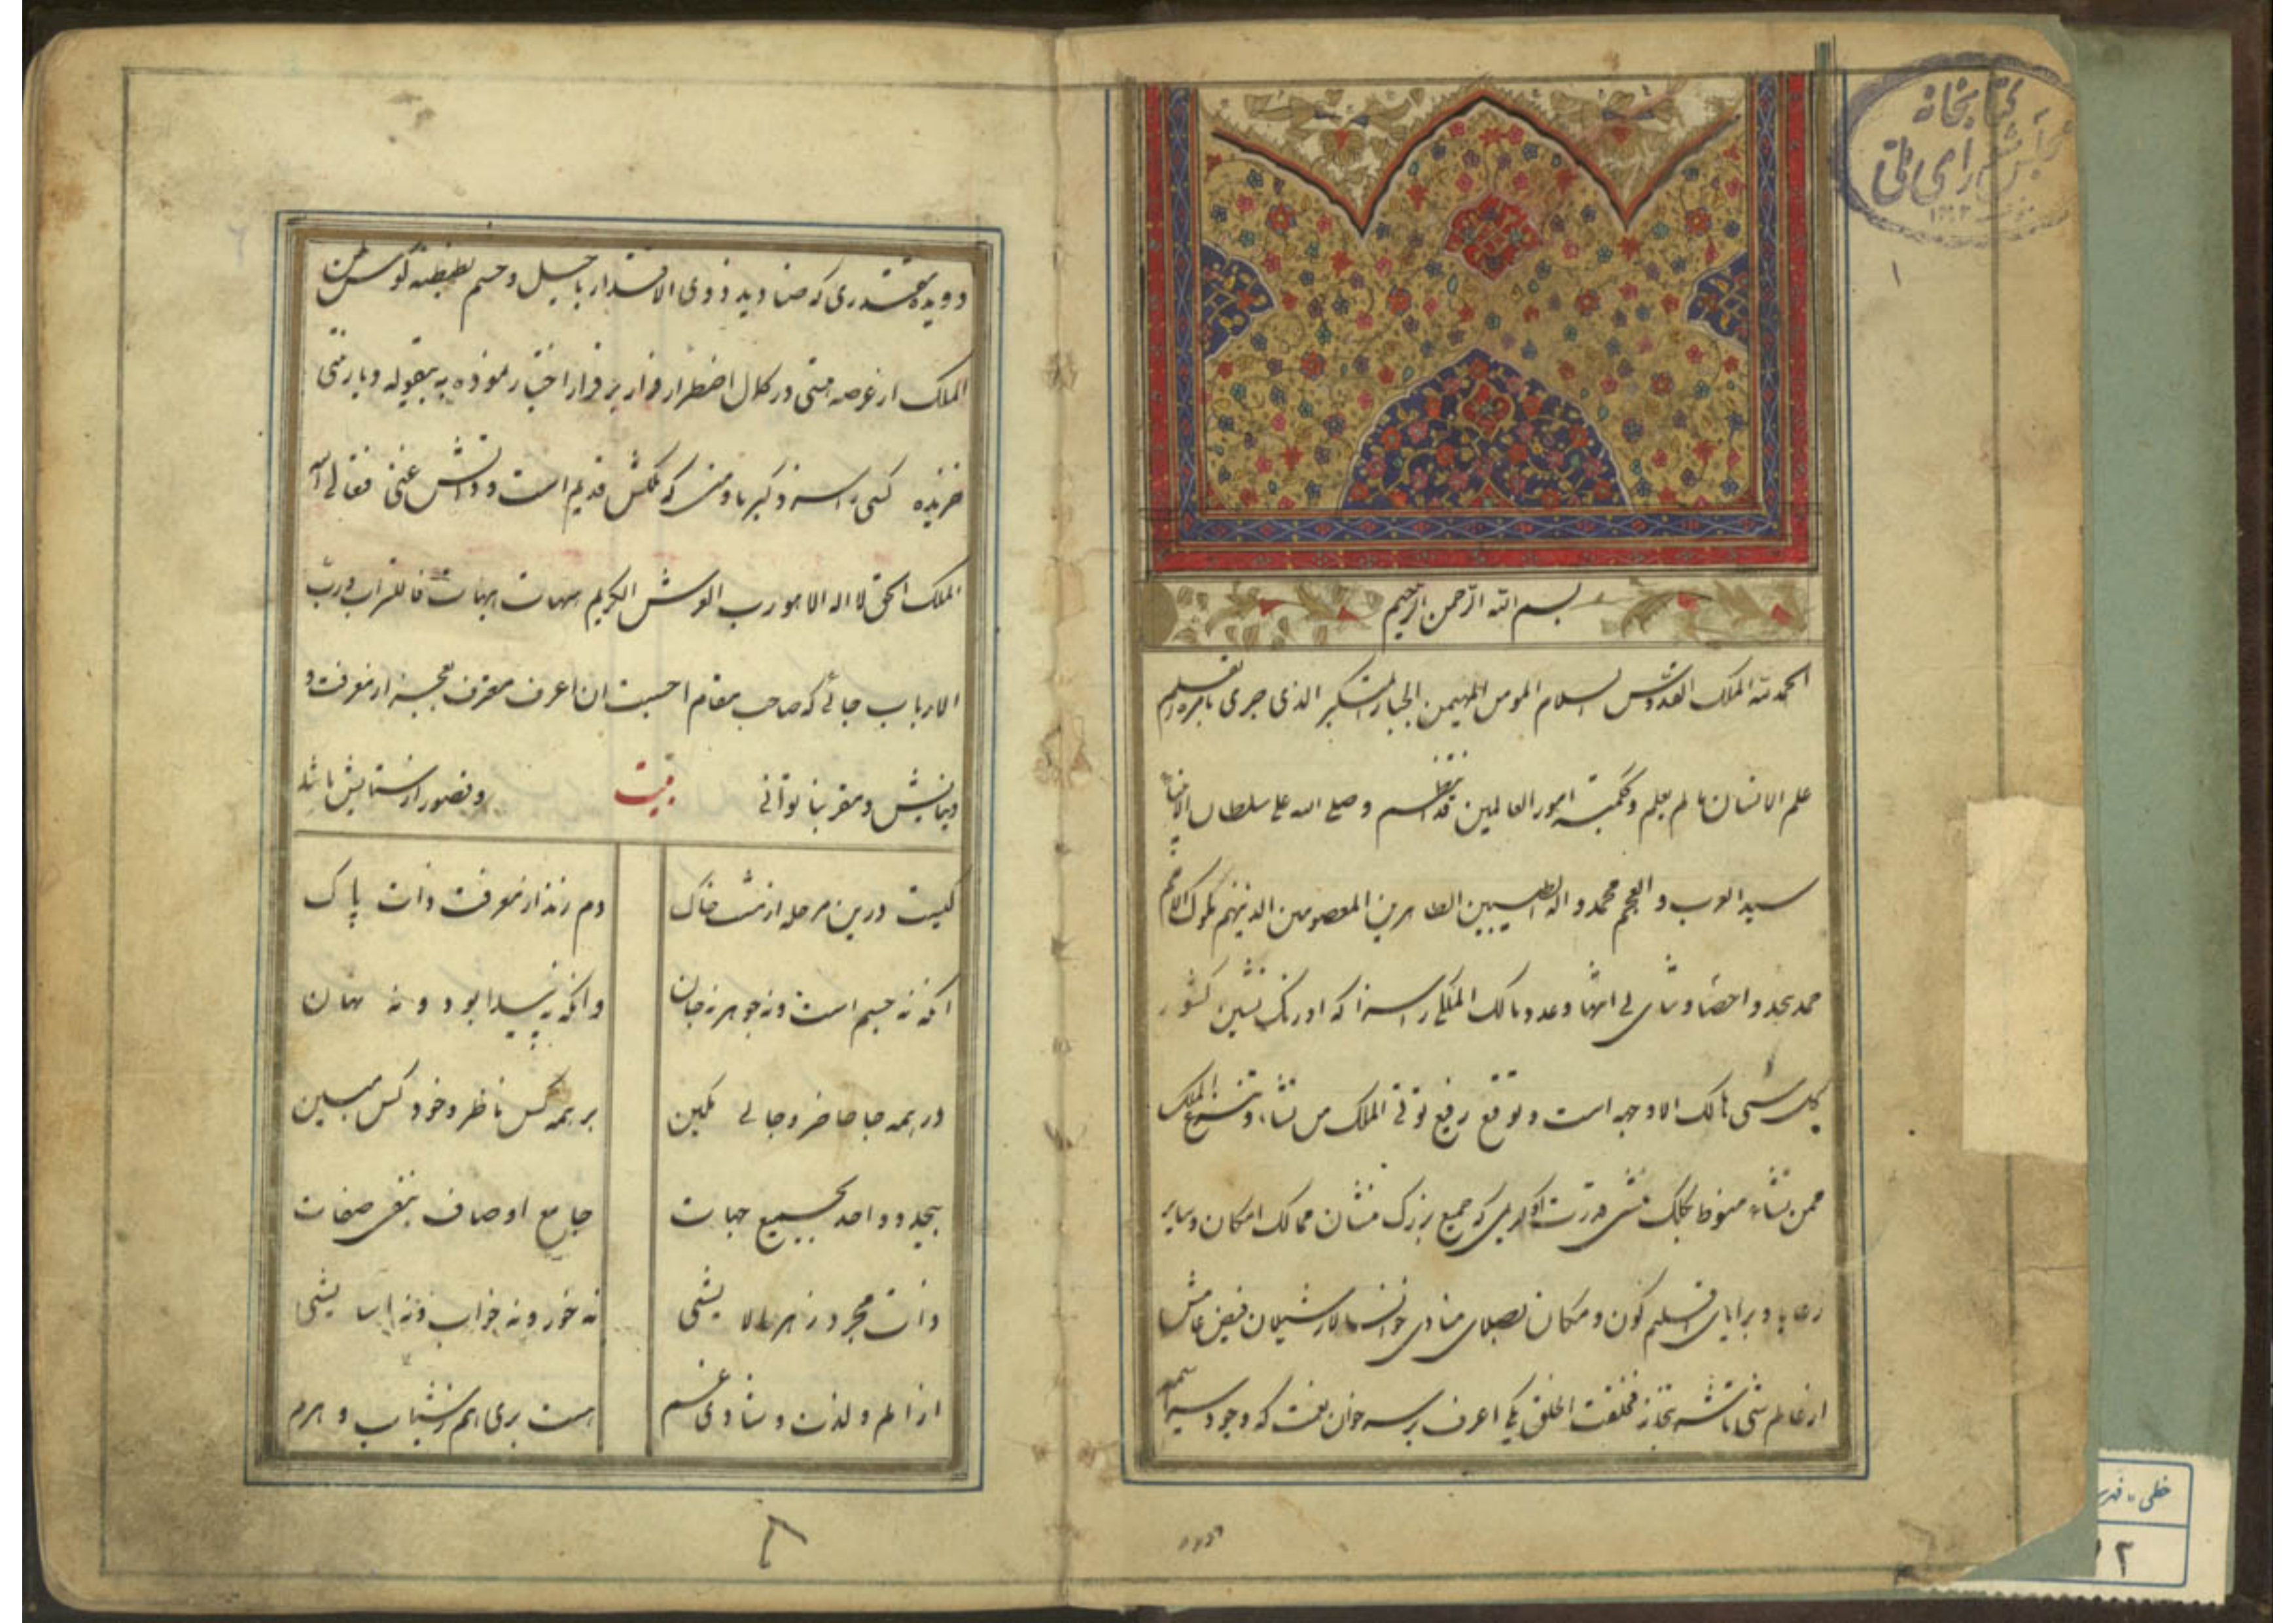 کتابخانه
مجلس شورای ملی
بسم الله الرحمن الرحیم
الحمد لله الملک القدوس السلام المومن المهیمن الجبار المتکبر الذی جری بامره القلم
علم الانسان مالم یعلم و بحکمته امور العالمین قد انتظم و صلی الله علی سلطان الانبیاء
سید العرب و العجم محمد و اله الطیبین الطاهرین المعصومین الذینهم ملوک الامم
حمد بیحد و احصا و ثنای بی انتها و عدد مالک الملکی را سزا که اورنک نشین کشور
کل شیی هالک الا وجهه است و توقیع رفیع توتی الملک من تشاء و تنزع الملک
ممن تشاء منوط بکلک منشی قدرت او کریمی که جمیع بزرک منشان ممالک امکان و سایر
رعایا و برایای اقلیم کون و مکان بصلای منادی خوانسالار شیلان فیض عامش
از عالم شی تا شه بتجاز فخلقت الخلق لکی اعرف بر سر خوان نعمت که وجود
دویده مقتدری که صنادید ذوی الاقتدار با خیل و حشم بطنطنه کوس لمن
الملک از عرصه هستی در کمال اضطرار فرار بر قرار اختیار نموده به بیقوله و یار نیستی
خزیده کسی را سزد کبریا و منی که ملکش قدیم است و ذاتش غنی فتعالی الله
الملک الحق لا اله الا هو رب العرش الکریم هیهات هیهات ما للتراب و رب
الارباب جائی که صاحب مقام احببت ان اعرف معترف بعجز از معرفت و
نیایش و مقر بناتوانی بیت و قصور از ستایش باشد
کیست درین مرحله از مشت خاک دم زند از معرفت ذات پاک
آنکه نه جسم است و نه جوهر نه جان وانکه نه پیدا بود و نه نهان
در همه جا حاضر و جا لی مکین بر همه کس ناظر و خود کس مبین
بیحد و واحد بجمیع جهات جامع اوصاف بنفی صفات
ذات مجرد ز هر الا یشی نه خور و نه خواب و نه اسا یشی
از الم و لذت و شادی و غم هست بری هم ز شباب و هرم
خطی
۲